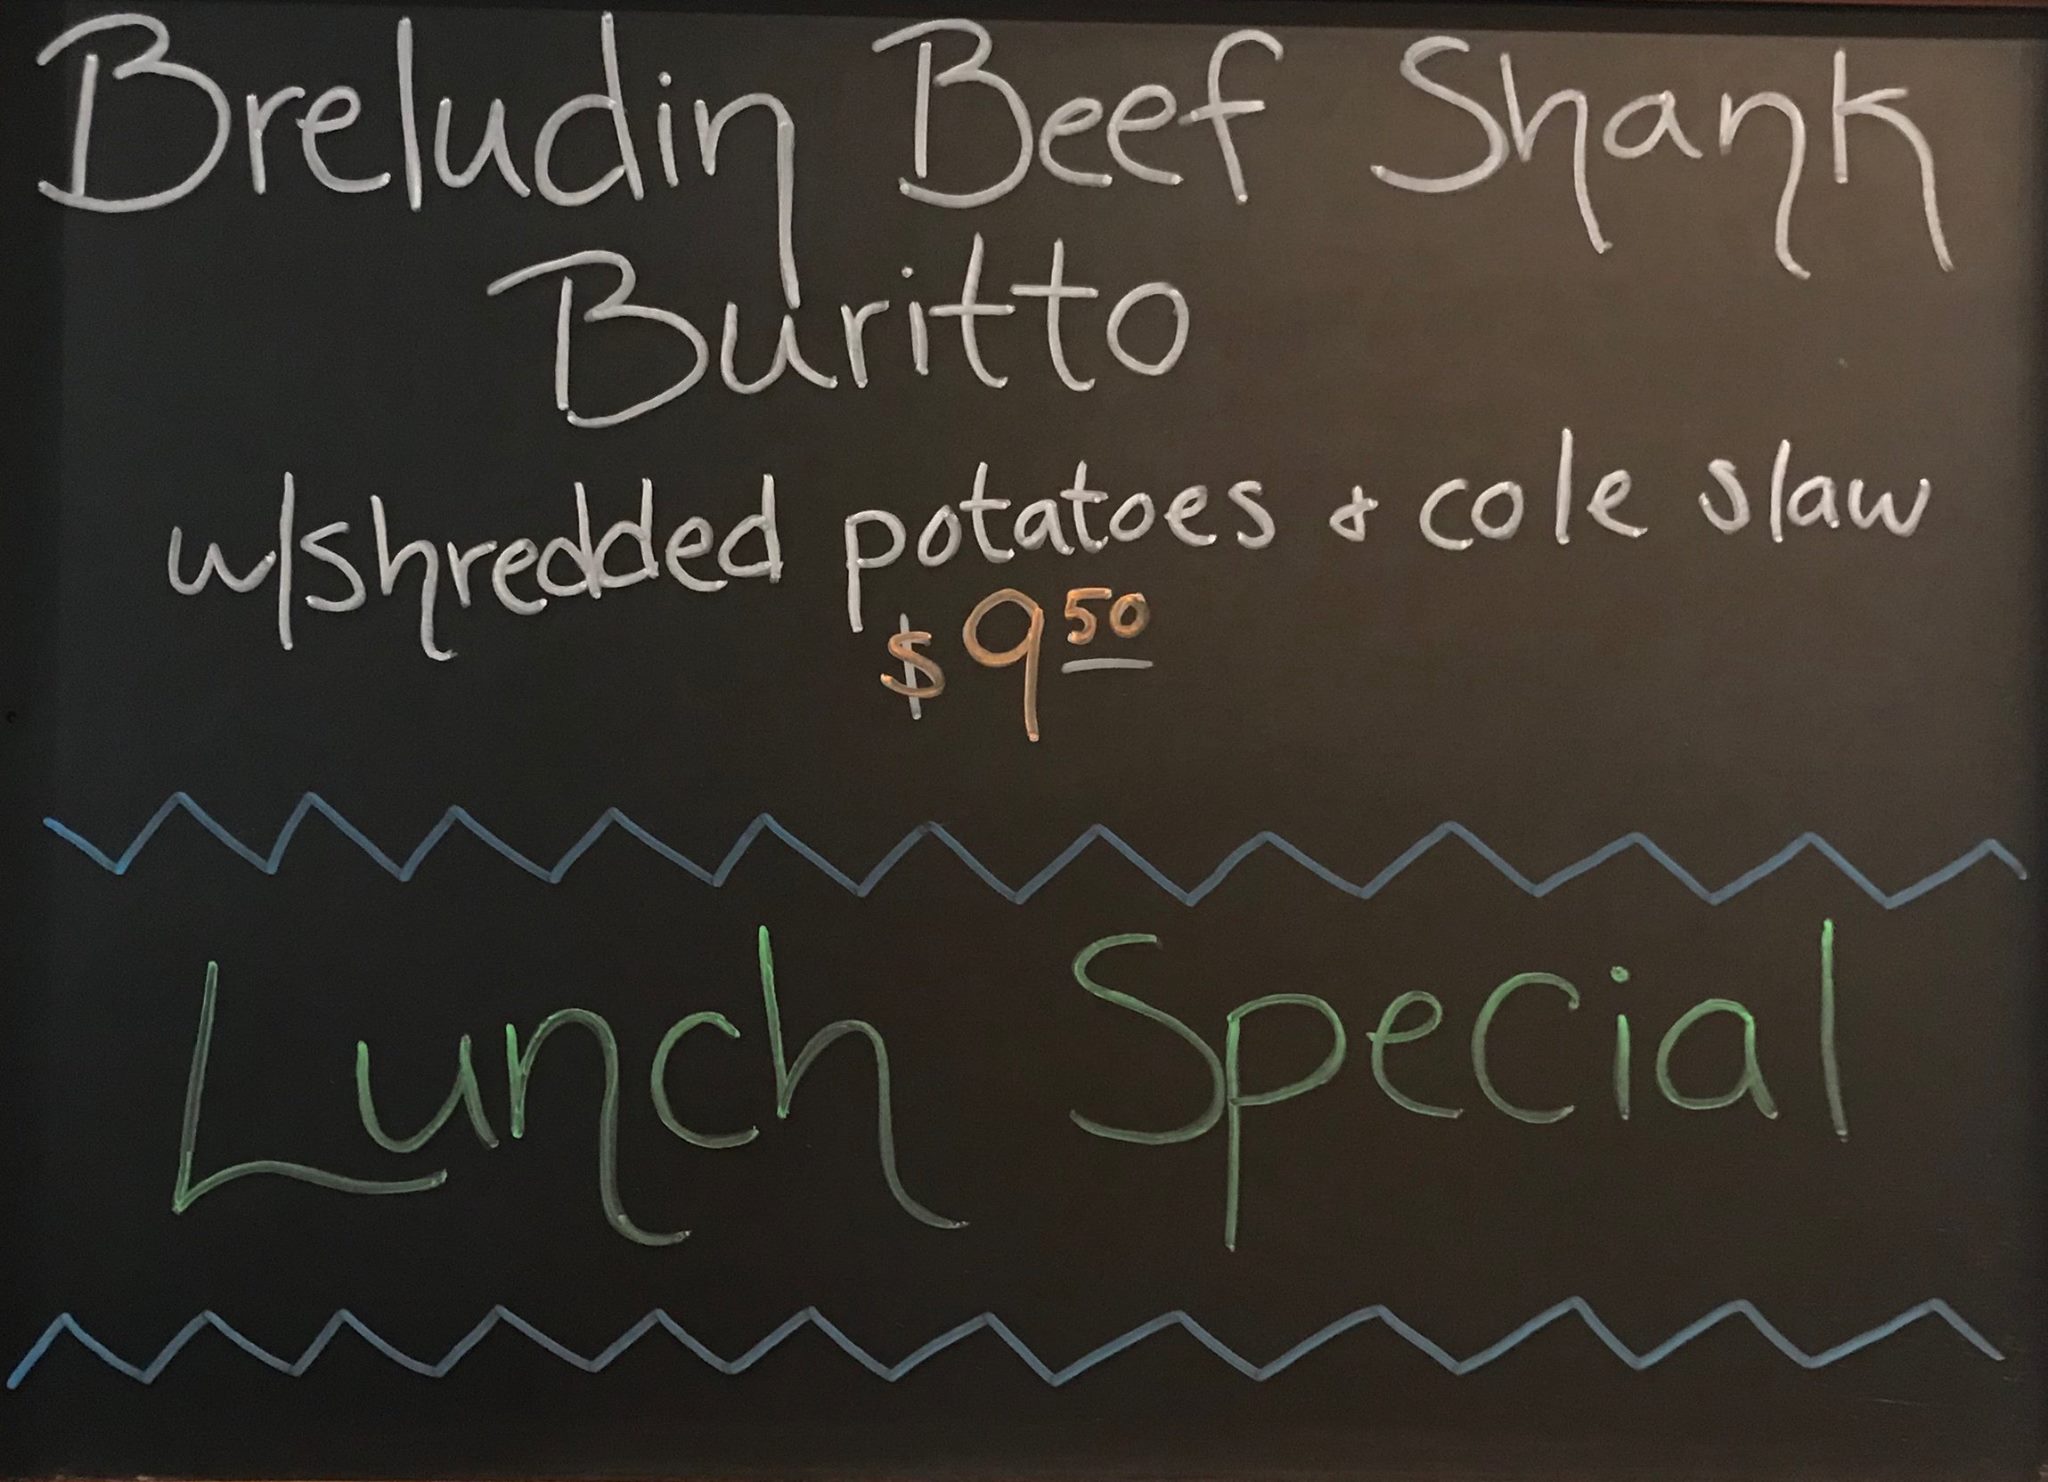 Breludin Beef Shank
Buritto
w/shredded potatoes & cole slaw
$9 50
Lunch Special